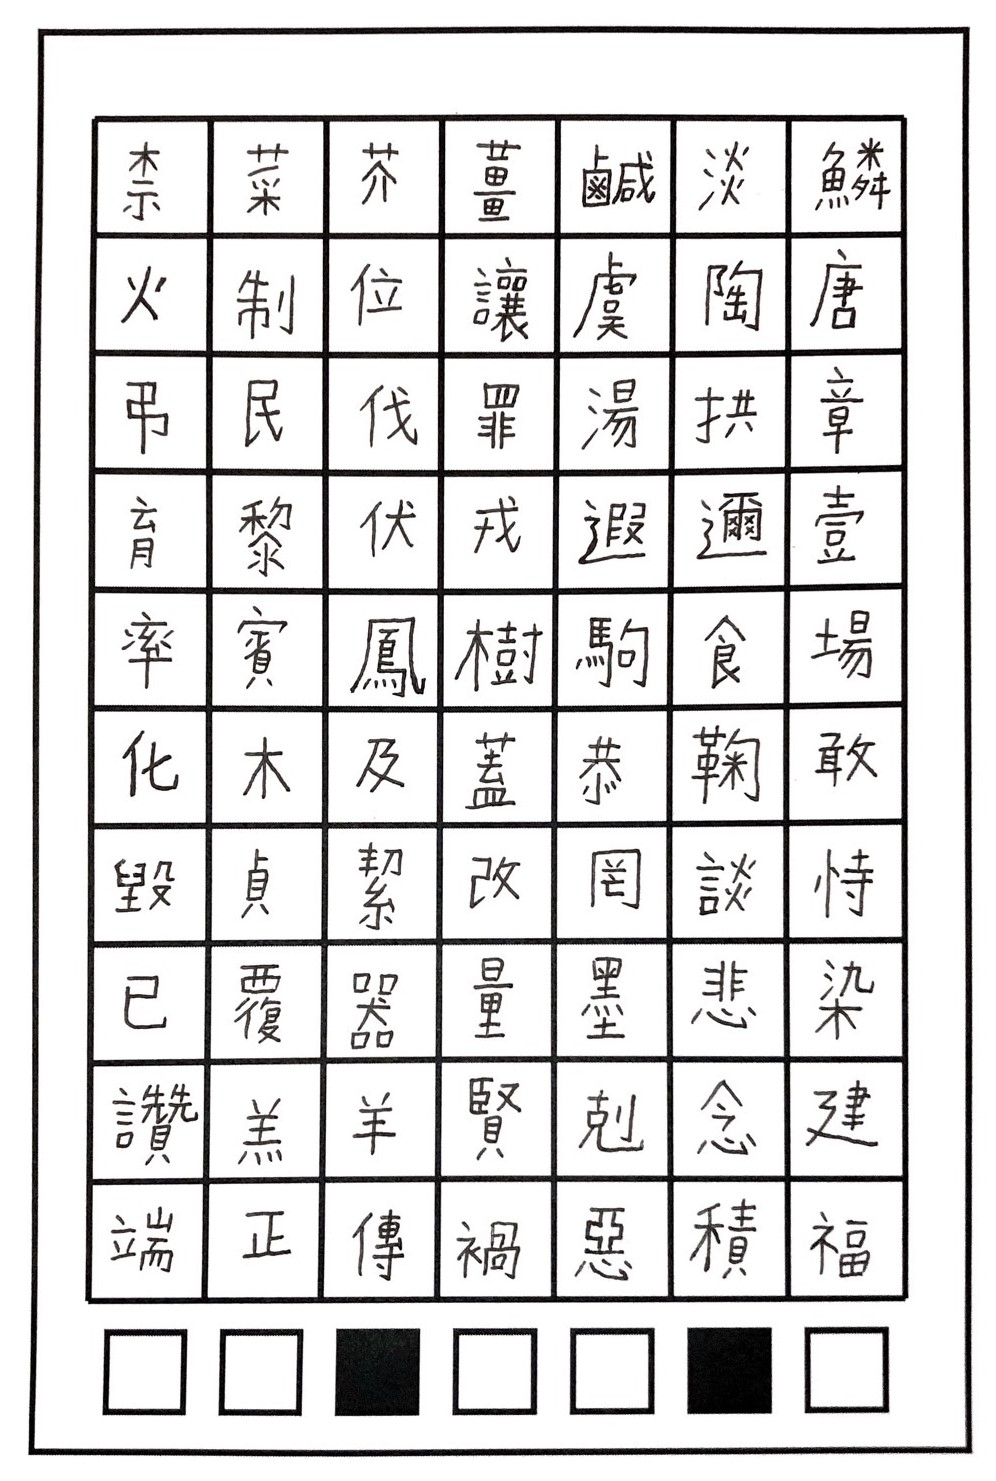 柰菜芥薑鹹淡鱗
火制位讓虞陶唐
弔民伐罪湯拱章
育黎伏戎遐邇壹
率賓鳳樹駒食場
化木及蓋恭鞠敢
毀貞絜改罔談恃
已覆器量墨悲染
讚羔羊賢剋念建
端正傳禍惡積福